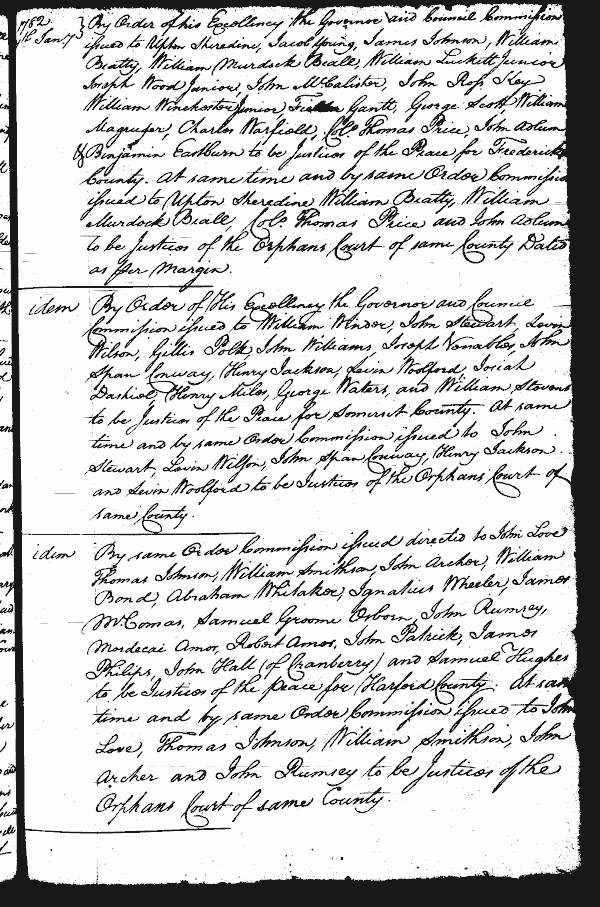 1782 By Order of his Excellency the Governor and Council Commission
7th Jany issued to Upton Sheredine, Jacob Young, James Johnson, William
Beatty, William Murdock Beall, William Luckett Junior
Joseph Wood Junior, John McCalister, John Ross Key
William Winchester Junior, Gantt, George Scott William
Magruder, Charles Warfield, Colo Thomas Price, John Adlum
& Binjamin Eastburn to be Justices of the Peace for Frederick
County. At same time and by same Order Commission
issued to Upton Sheredine William Beatty, William
Murdock Beall, Colo Thomas Price and John Adlum
to be Justices of the Orphans Court of same County Dated
as per Margin.
idem By Order of His Excellency the Governor and Council
Commission issued to William Winder, John Stewart, Levin
Wilson, Gillis Polk, John Williams, Joseph Venables, John
Span Conway, Henry Jackson, Levin Woolford, Josiah
Dashiel, Henry Miles, George Waters, and William Stevens
to be Justices of the Peace for Somerset County. At same
time and by same Order Commission issued to John
Stewart, Levin Wilson, John Span Conway, Henry Jackson.
and Levin Woolford to be Justices of the Orphans Court of
same County.
idem By same Order Commission issued directed to John Love
Thomas Johnson, William Smithson, John Archer, William
Bond, Abraham Whitaker, Ignatius Wheeler, James
McComas, Samuel Groome Osborn, John Rumsey,
Mordecai Amos, Robert Amos, John Patrick, James
Philips, John Hall (of Cranberry) and Samuel Hughes
to be Justices of the peace for Harford County. At same
time and by same Order Commission issued to John
Love, Thomas Johnson, William Smithson, John
Archer and John Rumsey to be Justices of the
Orphans Court of same County.